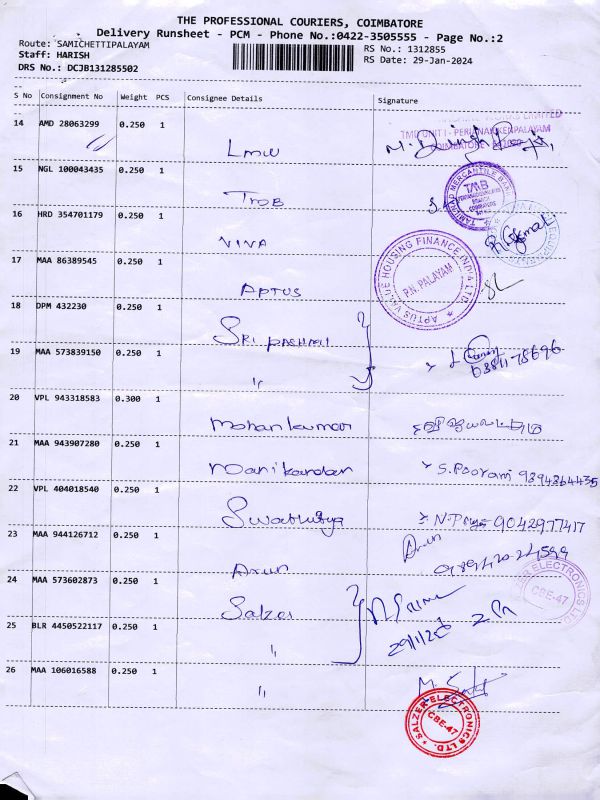 THE PROFESSIONAL COURIERS, COIMBATORE
Delivery Runsheet - PCM - Phone No.:0422-3505555 - Page No.:2
Route: SAMICHETTIPALAYAM
RS No.: 1312855
Staff: HARISH
RS Date: 29-Jan-2024
DRS No.: DCJB131285502
S No Consignment No Weight PCS Consignee Details Signature
14 AMD 28063299 0.250 1
TMD UNIT I - PERIANAICKENPALAYAM
LMW
15 NGL 100043435 0.250 1
TAMILNAD MERCANTILE BANK
TMB
TMB
16 HRD 354701179 0.250 1
VIVA
17 MAA 86389545 0.250 1
APTUS VALUE HOUSING FINANCE INDIA LTD.
P.N. PALAYAM
APTUS
18 DPM 432230 0.250 1
SRI
19 MAA 573839150 0.250 1
"
20 VPL 943318583 0.300 1
Mohan kumar
21 MAA 943907280 0.250 1
Manikandan
S. Poorani 9894364435
22 VPL 404018540 0.250 1
9042977417
23 MAA 944126712 0.250 1
Arun
Arun
24 MAA 573602873 0.250 1
SALZER ELECTRONICS LTD.
CBE-47
Salzer
25 BLR 4450522117 0.250 1
"
26 MAA 106016588 0.250 1
"
SALZER ELECTRONICS LTD.
CBE-47